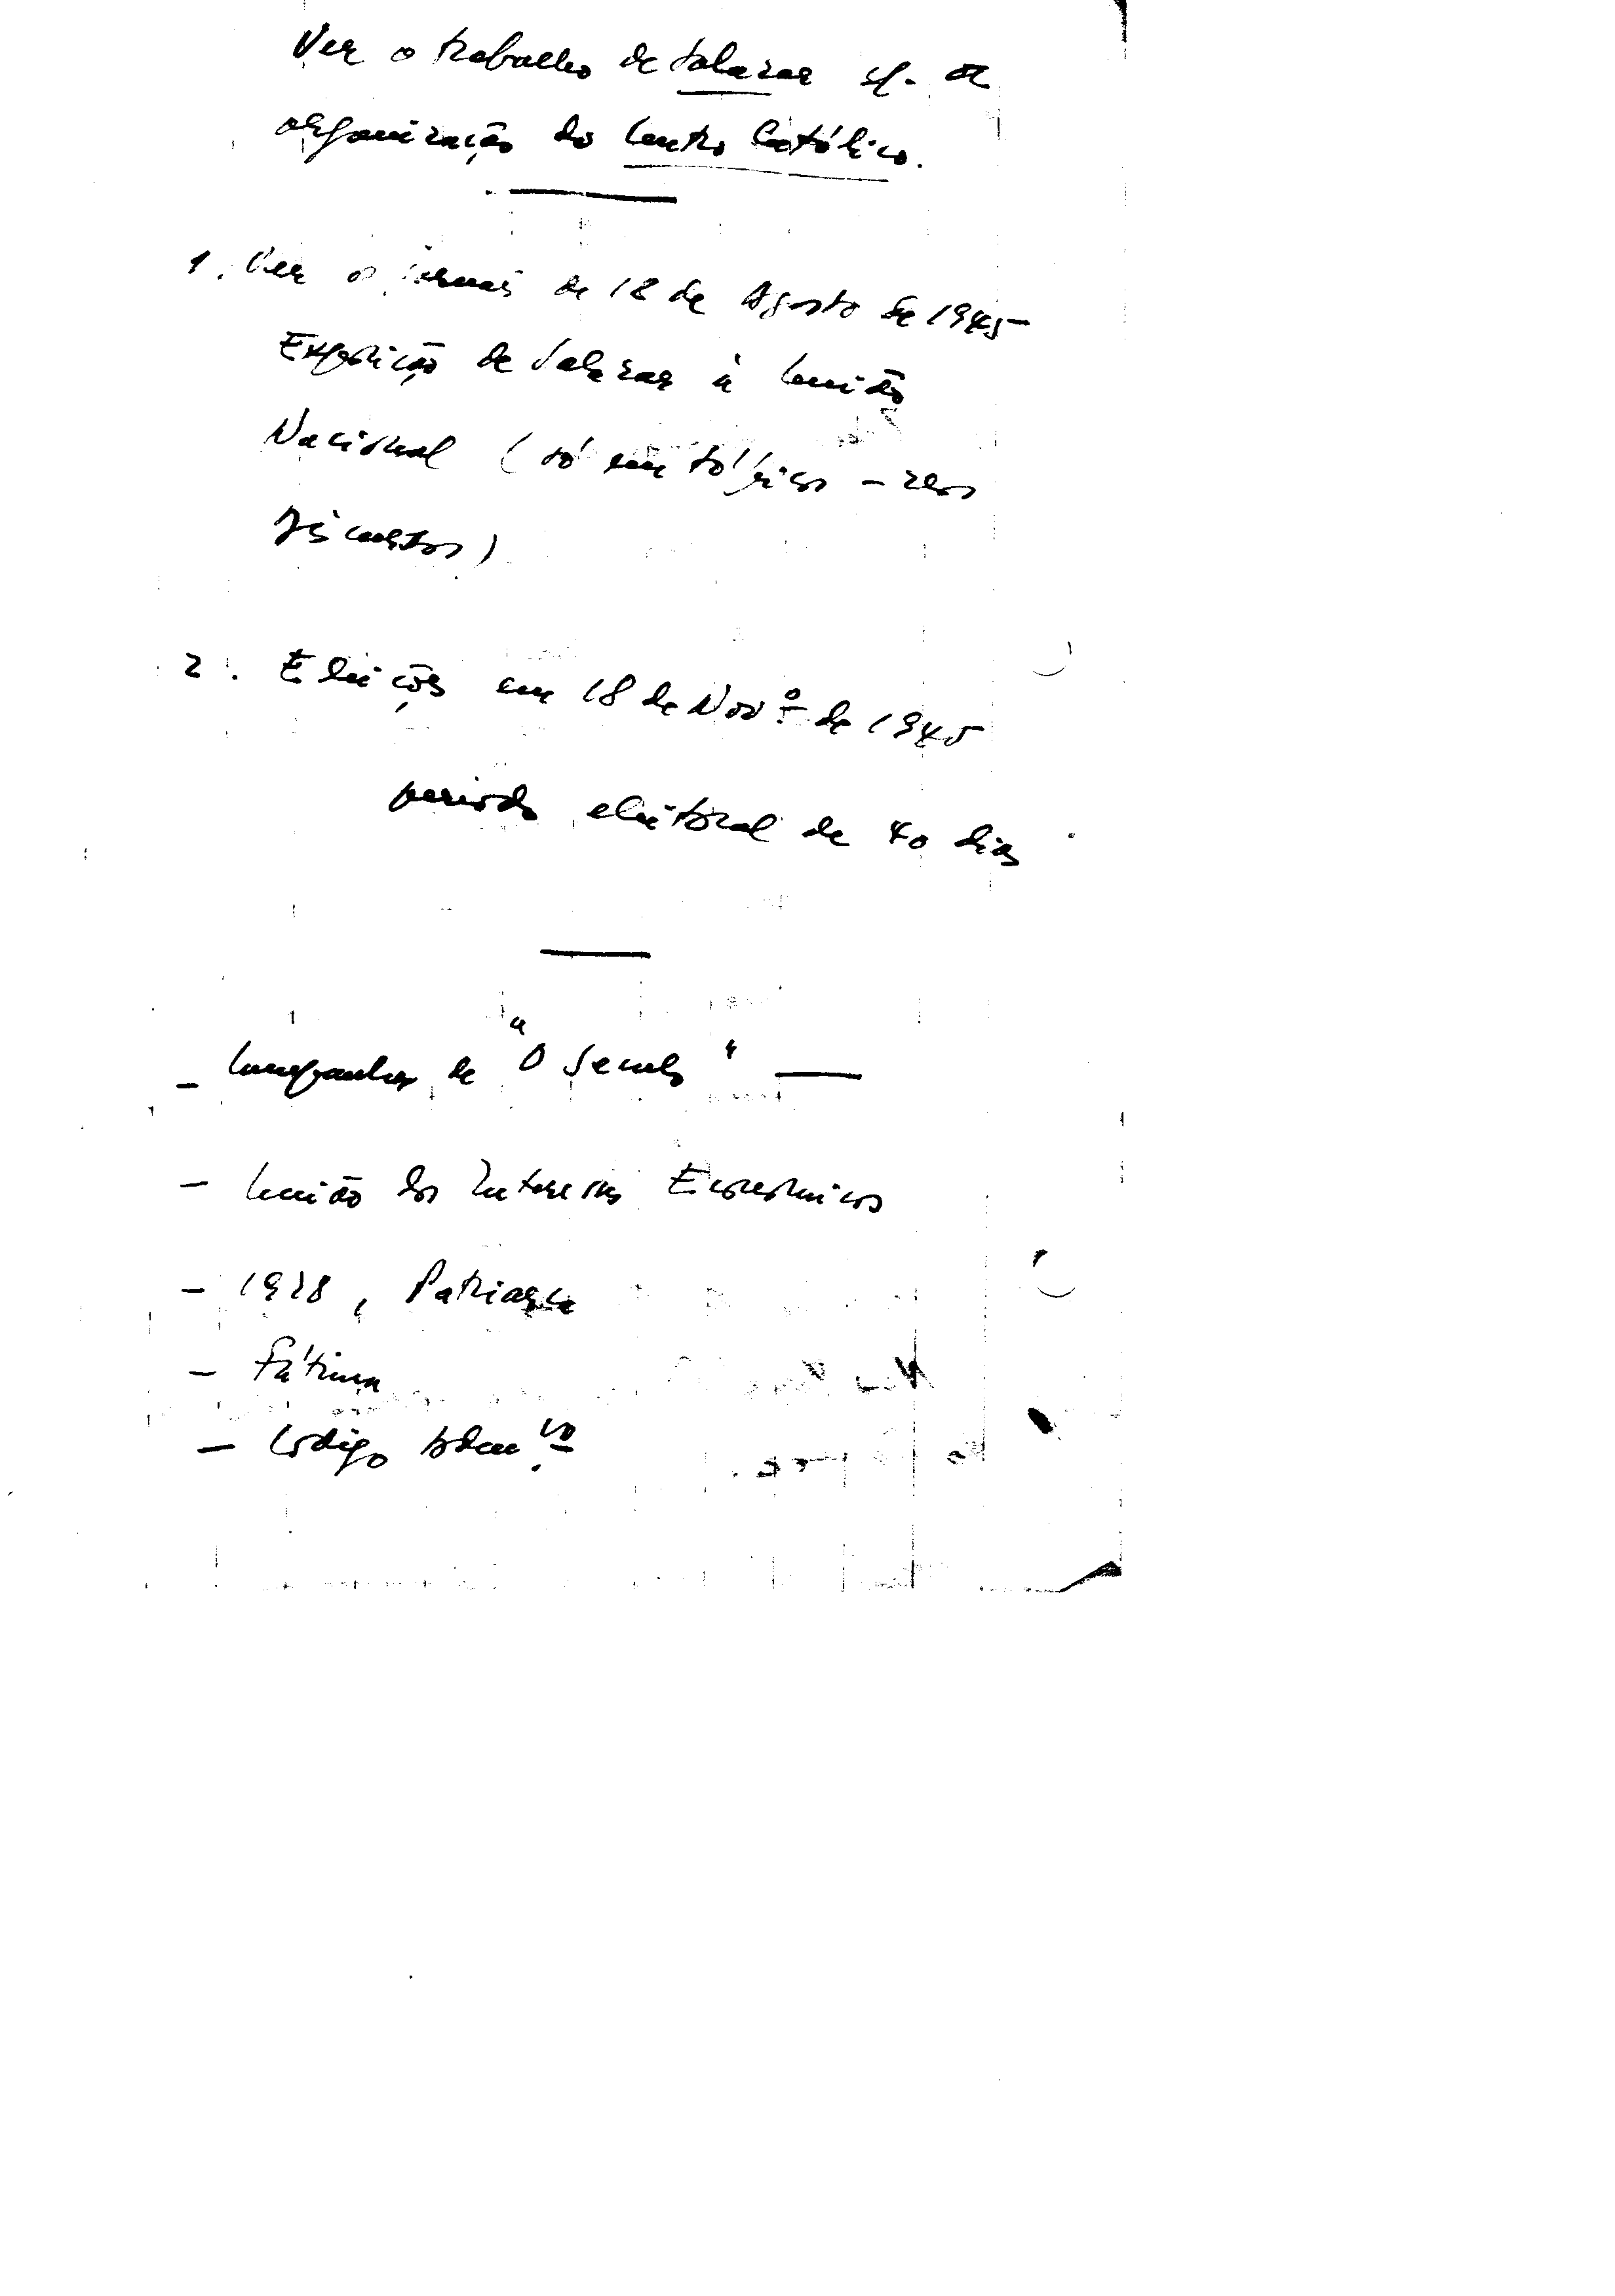 Ver o trabalho de Salazar s/. a
organização do Centro Católico.
1. Ver os jornais de 18 de Agosto de 1945
Exposição de Salazar à União
Nacional (só em tópicos –
)
2. Eleições em 18 de Novº de 1945
periodo eleitoral de 40 dias
– Campanhas de "O Seculo" —
– União dos Interesses Económicos
– 1928, Patriarca
– Fátima
– Codigo Admvo